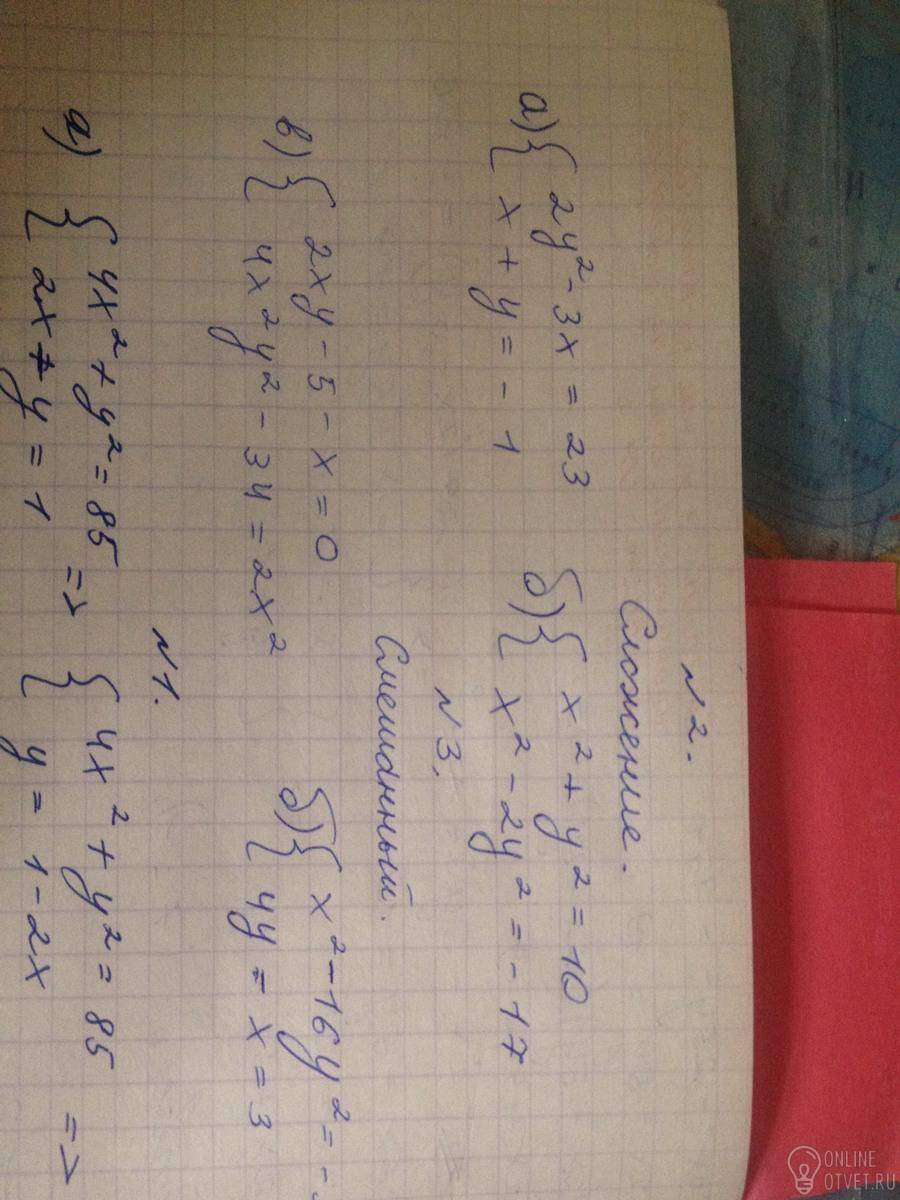 №2.
Сложение.
а) { 2y² - 3x = 23
x + y = -1
б) { x² + y² = 10
x² - 2y² = -17
№3.
Смешанный.
в) { 2xy - 5 - x = 0
4x²y² - 34 = 2x²
б) { x² - 16y² = -
4y = x = 3
№1.
а) { 4x² + y² = 85
2x + y = 1 => { 4x² + y² = 85
y = 1 - 2x =>
ONLINE
OTVET.RU